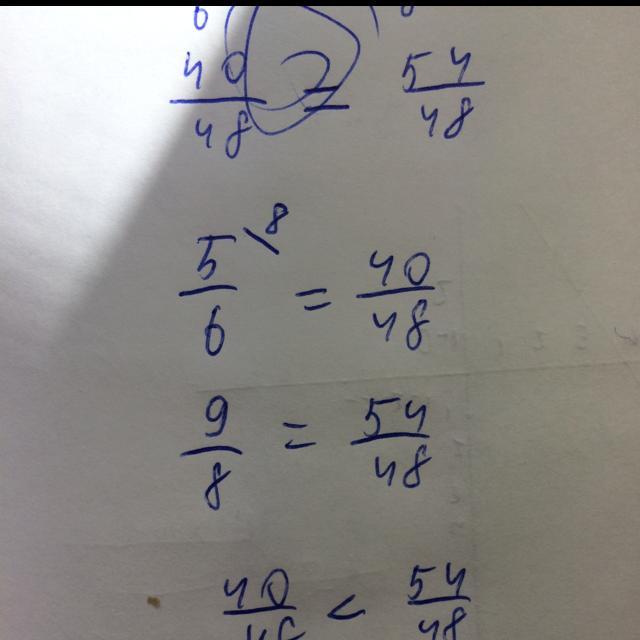 6 6
40/48 = 54/48
5/6 \8 = 40/48
9/8 = 54/48
40/48 < 54/48